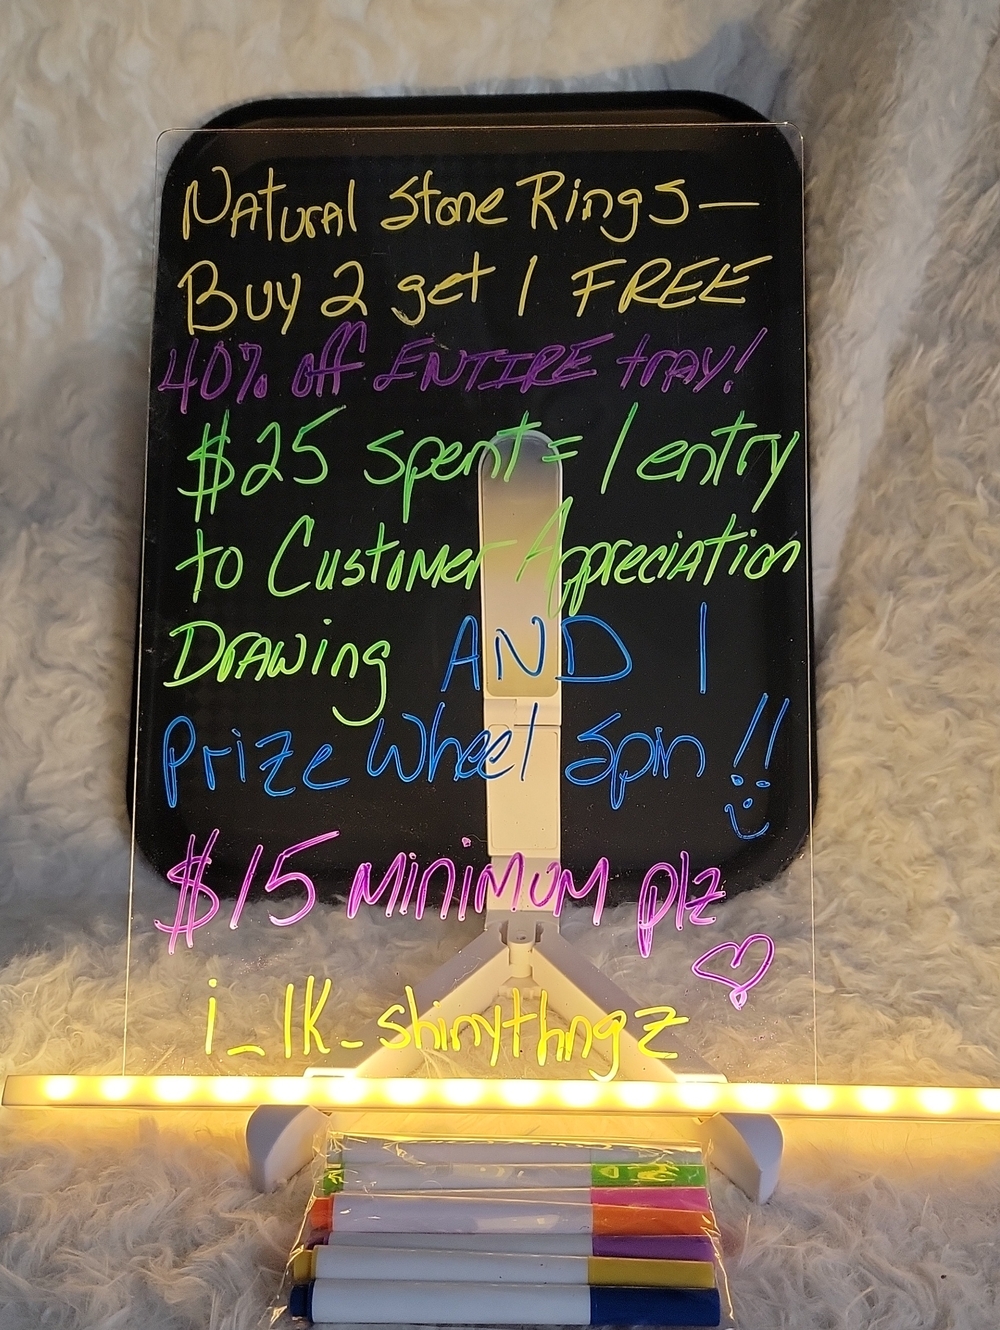 Natural Stone Rings—
Buy 2 get 1 FREE
40% off ENTIRE tray!
$25 spent = 1 entry
to Customer Appreciation
Drawing AND 1
Prize Wheel Spin!!
$15 minimum plz
i_lk_shinythngz